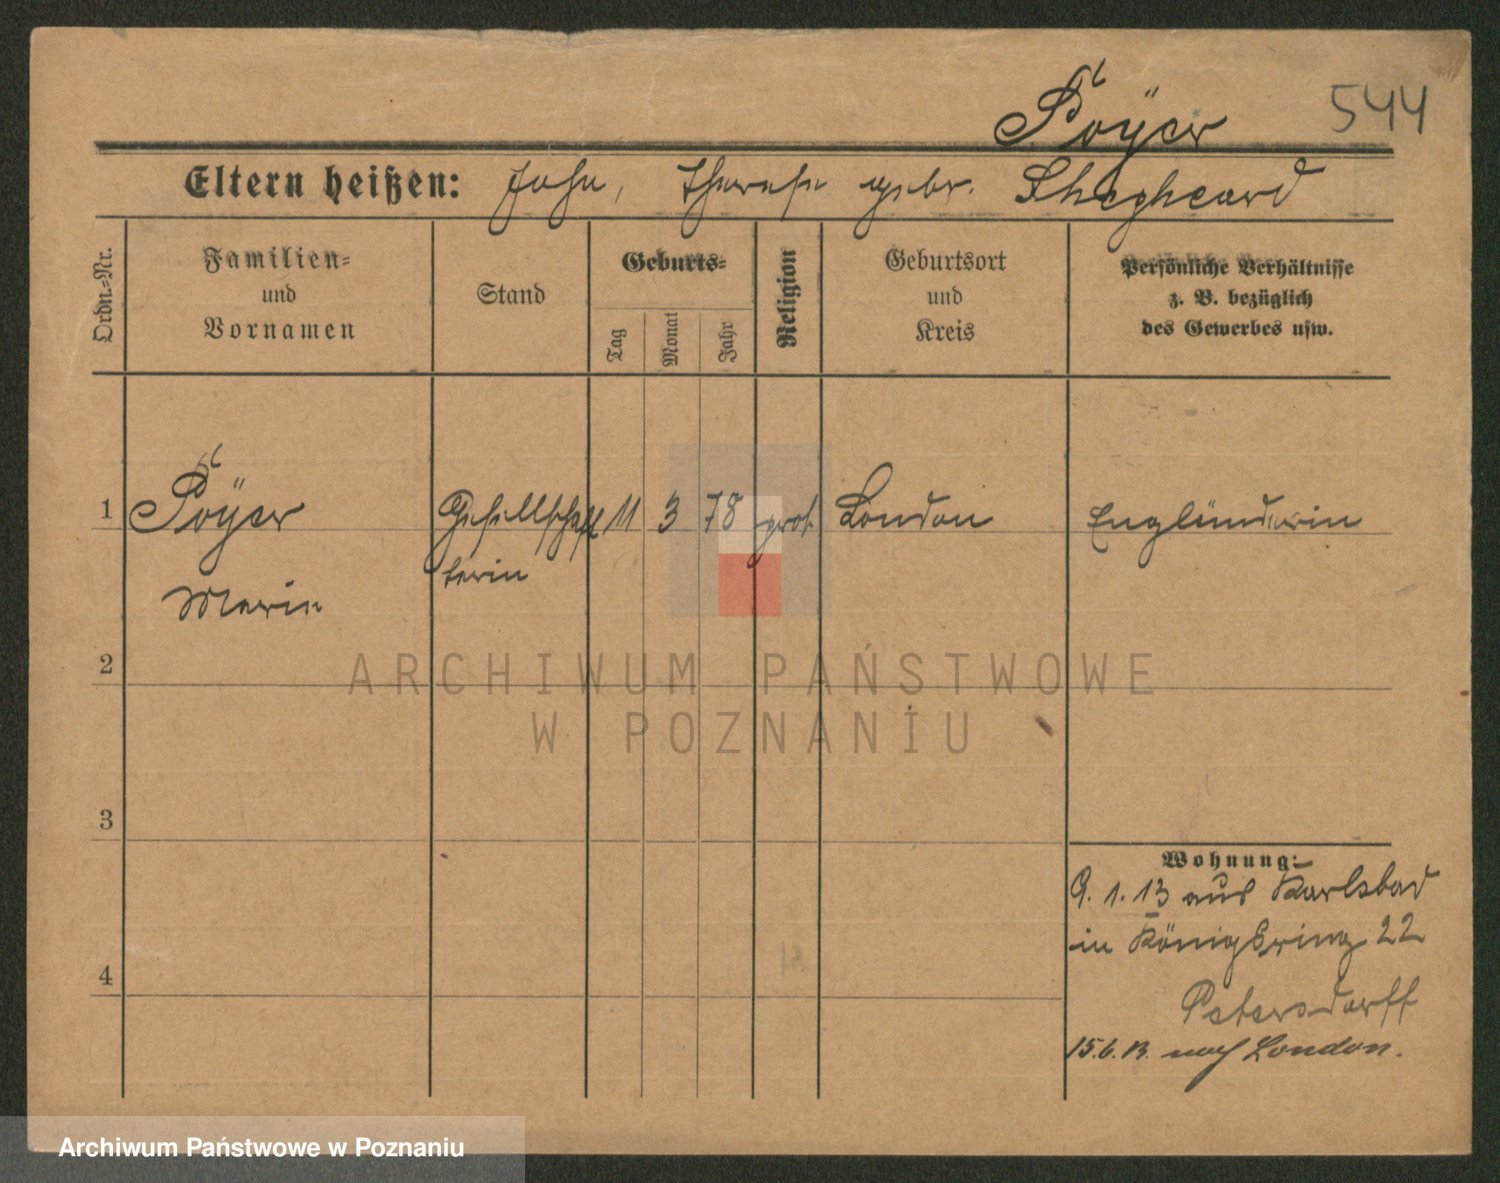 Pöyer 544
Eltern heißen: John, Therese gebr. Shegheard
Ordn.-Nr.
Familien-
und
Vornamen
Stand
Geburts-
Tag
Monat
Jahr
Religion
Geburtsort
und
Kreis
Persönliche Verhältnisse
z. B. bezüglich
des Gewerbes usw.
1 Pöyer Gesellschaf 11 3 78 prot. London Engländerin
terin
Marie
2
ARCHIWUM PAŃSTWOWE
W POZNANIU
3
Wohnung:
9. 1. 13 aus Karlsbad
in Königsring 22
4
Petersdorff
15.6.13. nach London.
Archiwum Państwowe w Poznaniu